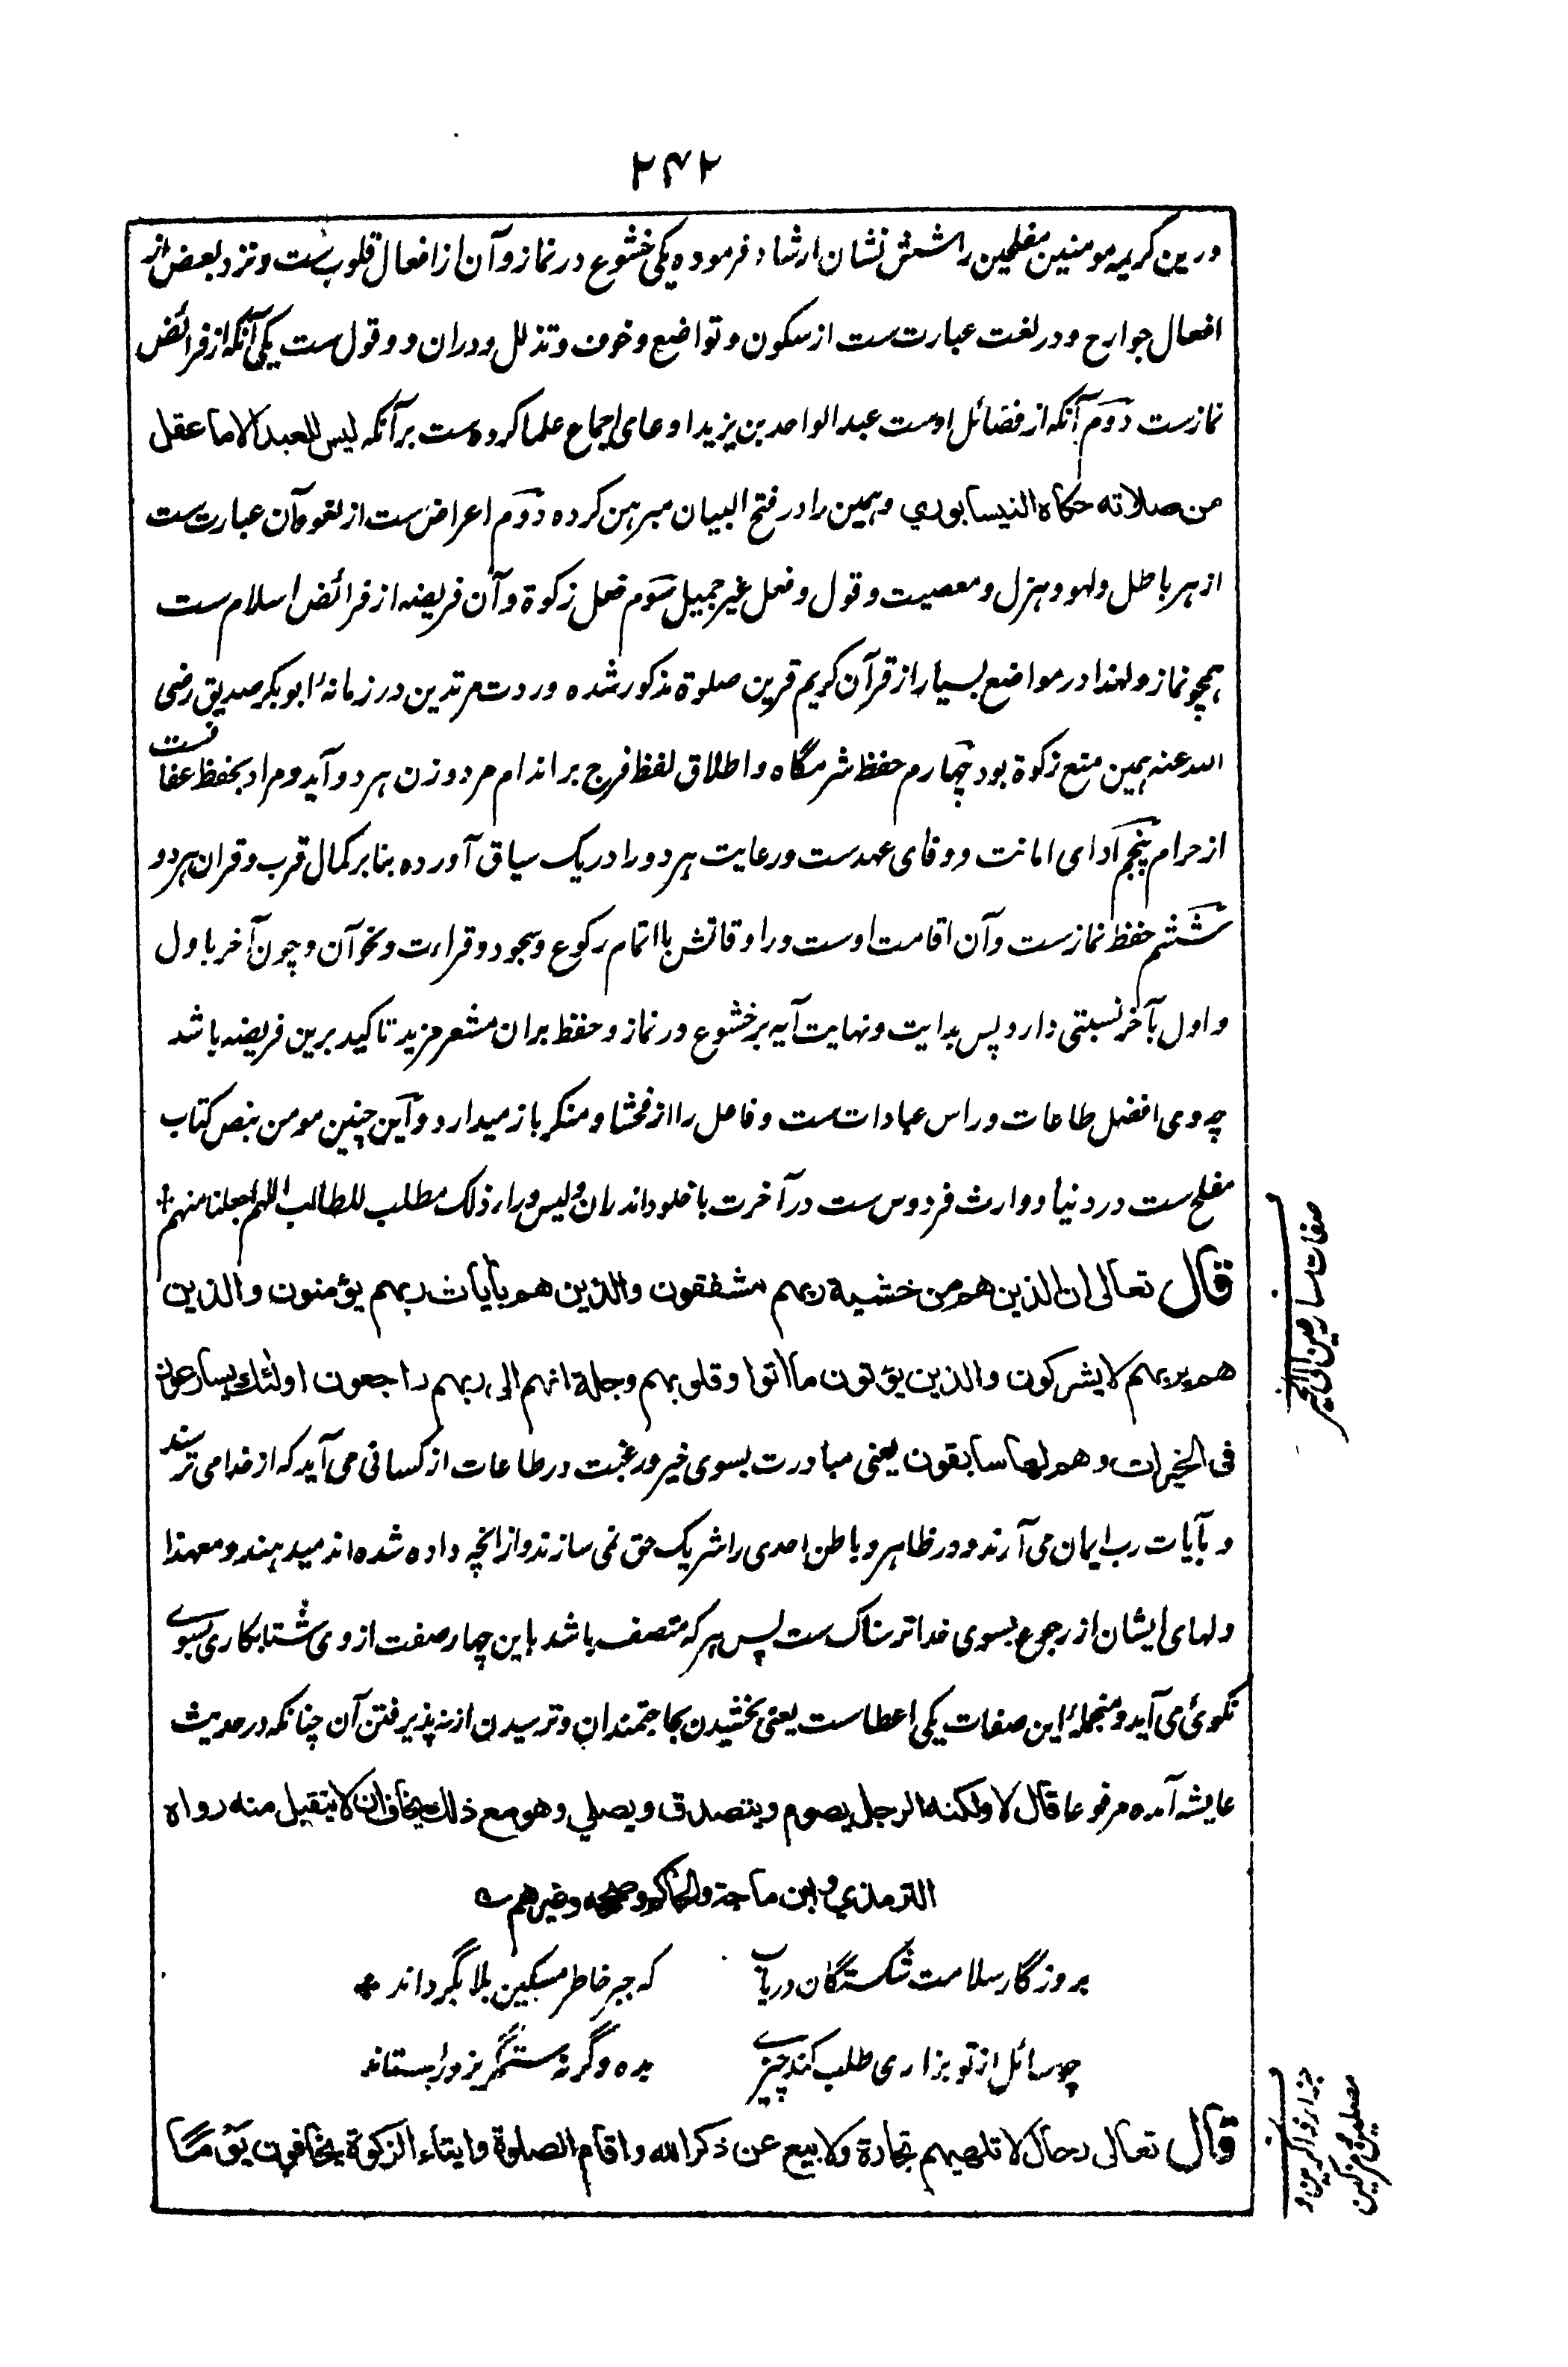 ۲۴۲
درین کریمه مومنین مفلحین را شش نشان ارشاد فرموده یکی خشوع در نماز و آن از افعال قلوب ست و نزد بعض از
افعال جوارح و در لغت عبارت ست از سکون و تواضع و خوف و تذلل و دران دو قول ست یکی آنکه از فرائض
نمازست دوم آنکه از فضائل اوست عبد الواحد بن یزید ادعای اجماع علما کرده ست بر آنکه لیس للعبد الا ما عقل
من صلاته حکاه النیسابوري و همین را در فتح البیان مبرهن کرده دوم اعراض ست از لغو و آن عبارت ست
از هر باطل و لهو و هزل و معصیت و قول و فعل غیر جمیل سوم فعل زکوة و آن فریضه از فرائض اسلام ست
همچو نماز و لهذا در مواضع بسیار از قرآن کریم قرین صلوة مذکور شده و ردت مرتدین در زمانهٔ ابوبکر صدیق رضی
الله عنه همین منع زکوة بود چهارم حفظ شرمگاه و اطلاق لفظ فرج بر اندام مرد و زن هر دو آید و مراد بحفظ عفافست
از حرام پنجم ادای امانت و وفای عهدست و رعایت هر دو را در یک سیاق آورده بنا بر کمال قرب و قران هر دو
ششم حفظ نمازست و آن اقامت اوست در اوقاتش با اتمام رکوع و سجود و قراءت و نحو آن و چون آخر باول
و اول بآخر نسبتی دارد پس بدایت و نهایت آیه بر خشوع در نماز و حفظ بران مشعر مزید تاکید برین فریضه باشد
چه وی افضل طاعات و راس عبادات ست و فاعل را از فحشا و منکر باز میدارد و این چنین مومن بنص کتاب
مفلح ست در دنیا و وارث فردوس ست در آخرت با خلود اندران و لیس وراء ذلک مطلب للطالب اللهم اجعلنا منهم +
قال تعالی ان الذین هم من خشیة ربهم مشفقون والذین هم بآیات ربهم یؤمنون والذین
هم بربهم لا یشرکون والذین یؤتون ما اتوا وقلوبهم وجلة انهم الی ربهم راجعون اولئك یسارعون
فی الخیرات وهم لها سابقون یعنی مبادرت بسوی خیر و رغبت در طاعات از کسانی می آید که از خدا می ترسند
و بآیات رب ایمان می آرند و در ظاهر و باطن احدی را شریک حق نمی سازند و از آنچه داده شده اند میدهند و معهذا
دلهای ایشان از رجوع بسوی خدا ترسناک ست پس هر که متصف باشد باین چهار صفت از وی شتابکاری بسوے
نکوئی می آید و منجملهٔ این صفات یکی اعطاست یعنی بخشیدن بحاجتمندان و ترسیدن از نه پذیرفتن آن چنانکه در حدیث
عایشه آمده مرفوعا قال لا ولکنه الرجل یصوم ویتصدق ویصلي وهو مع ذلك یخاف ان لا یتقبل منه رواه
الترمذي وابن ماجة والحاکم وصححه وغیرهم ؎
بروزگار سلامت شکستگان دریاب که جبر خاطر مسکین بلا بگرداند +
چو سائل از تو بزاری طلب کند چیزے بده وگرنه ستمگر بزور بستاند
قال تعالی رجال لا تلهیهم تجارة ولا بیع عن ذکر الله واقام الصلوة وایتاء الزکوة یخافون یوما
صفات مسارعین الی الخیر
جزاء ذاکرین و
مصلین و مزکین